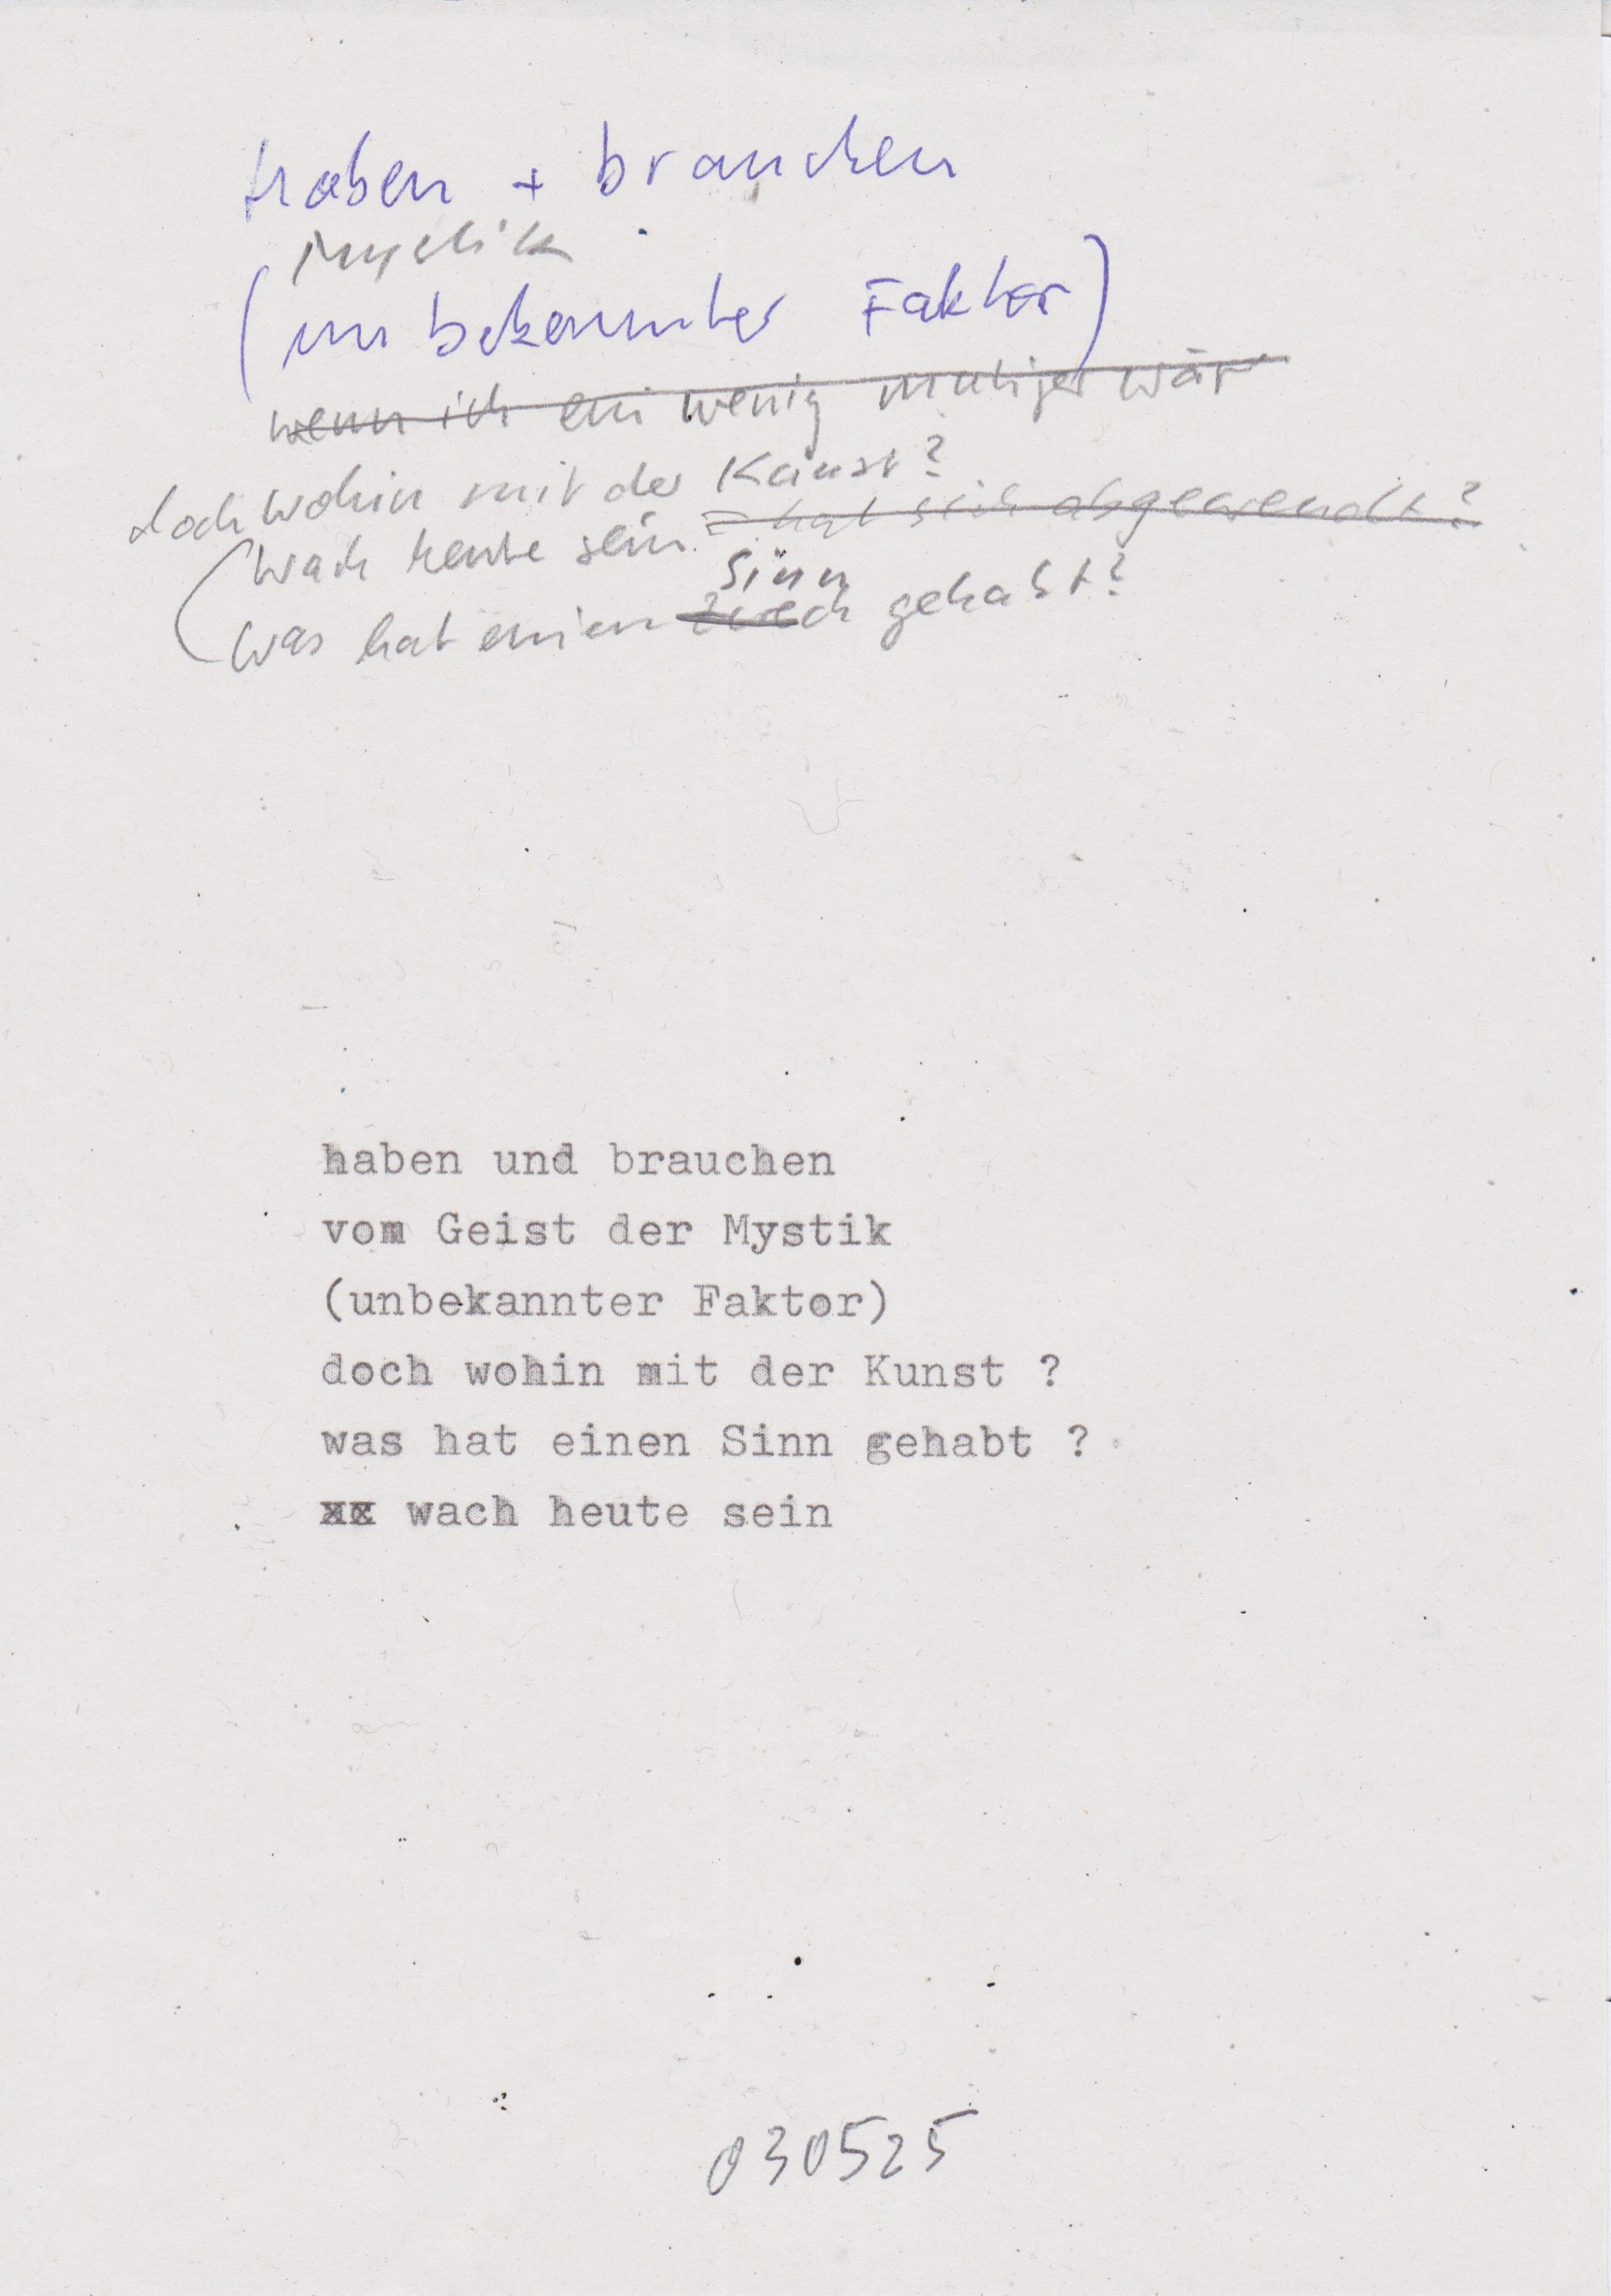 haben + brauchen
Mystik
(unbekannter Faktor)
wenn ich ein wenig mutiger wär
doch wohin mit der Kunst?
wach heute sein. hat sich abgewendet?
Sinn
(was hat einen Zweck gehabt?
haben und brauchen
vom Geist der Mystik
(unbekannter Faktor)
doch wohin mit der Kunst ?
was hat einen Sinn gehabt ?
xx wach heute sein
030525